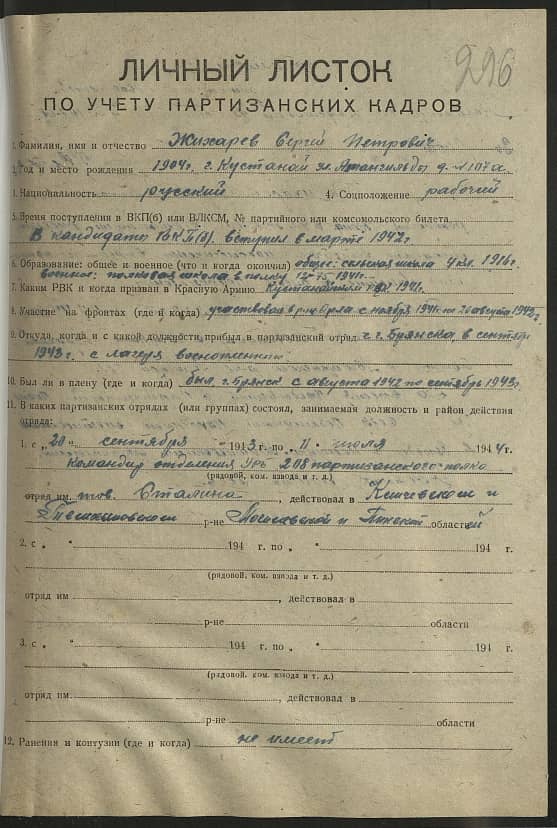 296
ЛИЧНЫЙ ЛИСТОК
ПО УЧЕТУ ПАРТИЗАНСКИХ КАДРОВ
1. Фамилия, имя и отчество Жихарев Сергей Петрович
2. Год и место рождения 1904г. г. Кустанай ул. Амангильды д. № 107а.
3. Национальность русский 4. Соцположение рабочий
5. Время поступления в ВКП(б) или ВЛКСМ, № партийного или комсомольского билета
В кандидаты ВКП(б). вступил в марте 1942г.
6. Образование: общее и военное (что и когда окончил) общее: сельская школа 4 кл. 1916г.
военное: полковая школа в полку 1941г.
7. Каким РВК и когда призван в Красную Армию Кустанайский 1941г.
8. Участие на фронтах (где и когда) участвовал Орла с ноября 1941г. по августа 1942г.
9. Откуда, когда и с какой должности прибыл в партизанский отряд с г. Брянска, в сентябр
1943г. с лагеря военопленных
10. Был ли в плену (где и когда) был, г. Брянск с августа 1942 по сентябрь 1943г.
11. В каких партизанских отрядах (или группах) состоял, занимаемая должность и район действия
отряда:
1. с „20" сентября 1943 г. по „11" июля 1944 г.
командир отделения 208 партизанского полка
(рядовой, ком. взвода и т. д.)
отряд им. тов. Сталина, действовал в Кличевском и
р-не Могилевской и Пинской областей
2. с „ " 194 г. по „ " 194 г.
(рядовой, ком. взвода и т. д.)
отряд им , действовал в
р-не области
3. с „ " 194 г. по „ " 194 г.
(рядовой, ком. взвода и т. д.)
отряд им. , действовал в
р-не области
12. Ранения и контузии (где и когда) не имеет